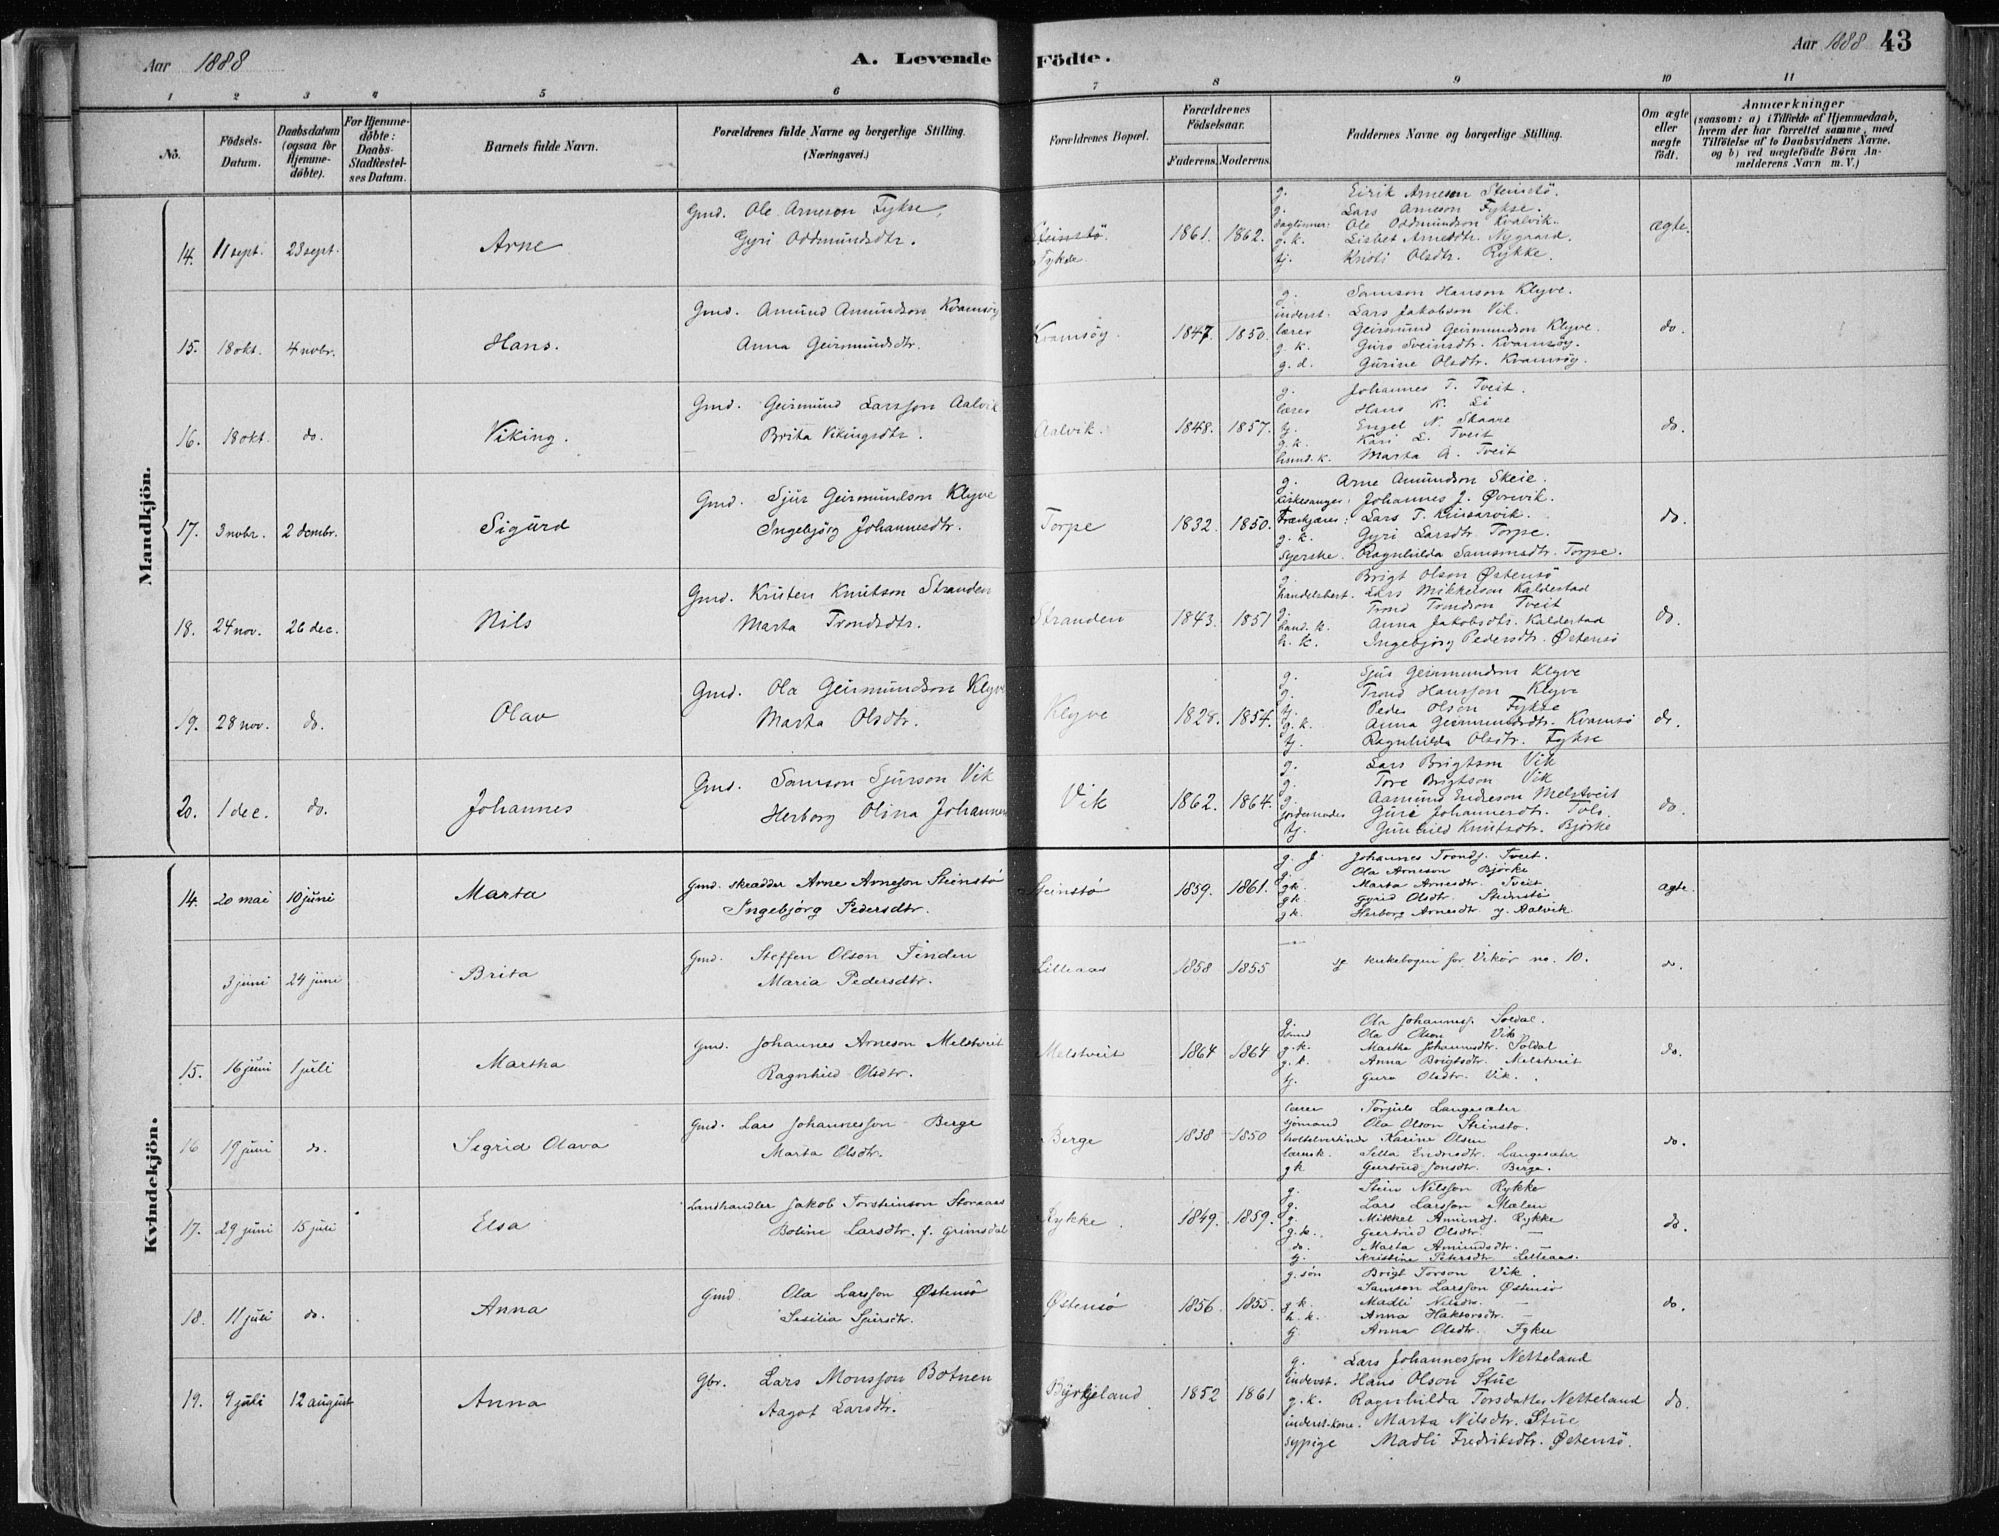 Aar 1888
A. Levende Födte.
Aar 1888 43
1 2 3 4 5 6 7 8 9 10 11
No.
Födsels-Datum.
Daabsdatum (ogsaa for Hjemme-döbte).
For Hjemme-döbte: Daabs-Stadfæstel-ses Datum.
Barnets fulde Navn.
Forældrenes fulde Navne og borgerlige Stilling. (Næringsvei.)
Forældrenes Bopæl.
Forældrenes Födselsaar.
Faderens. Moderens.
Faddernes Navne og borgerlige Stilling.
Om ægte eller uægte födt.
Anmærkninger (saasom: a) i Tilfælde af Hjemmedaab, hvem der har forrettet samme, med Tilföielse af to Daabsvidners Navne, og b) ved uægtefödte Börn An-melderens Navn m. V.)
Mandkjön.
14. 11 sept. 23 sept. Arne
Gmd. Ole Arneson Fykse,
Gyri Oddmundsdtr.
Steinstö.
Fykse
1861. 1862.
g. Eirik Arneson Steinstö.
g. Lars Arneson Fykse.
Ole Oddmundson Kvalvik.
g. k. Lisbet Arnesdtr. Nygaard.
tj. Kristi Olsdtr. Rykke.
ægte.
15. 18 okt. 4 novbr. Hans.
Gmd. Amund Amundson Kvamsöy
Anna Geirmundsdtr.
Kvamsöy
1847. 1850.
g. Samson Hanson Klyve.
inderst. Lars Jakobson Vik.
lærer Geirmund Geirmundson Klyve.
g. k. Guro Sveinsdtr. Kvamsöy.
g. d. Gurine Olsdtr. Kvamsöy.
do.
16. 18 okt. do. Viking.
Gmd. Geirmund Larsson Aalvik
Brita Vikingsdtr.
Aalvik.
1848. 1857.
g. Johannes T. Tveit.
lærer Hans K. Li
tj. Engel N. Skaare
g. k. Kari L. Tveit
husm. k. Marta A. Tveit
do.
17. 3 novbr. 2 decmbr. Sigurd
Gmd. Sjur Geirmundson Klyve
Ingebjörg Johannesdtr.
Torpe
1832. 1850.
g. Arne Amundson Skeie.
kirkesanger: Johannes J. Övrevik.
Lars T. Kinsarvik.
g. k. Gyri Larsdtr. Torpe.
Syerske. Ragnhilda Samsonsdtr. Torpe.
do.
18. 24 nov. 26 dec. Nils
Gmd. Kristen Knutson Stranden
Marta Trondsdtr.
Stranden
1843. 1851
g. Brigt Olson Østensö
handelsbest. Lars Mikkelson Kaldestad
g. Trond Trondson Tveit
hand. k. Anna Jakobsdtr. Kaldestad
h. k. Ingebjörg Pedersdtr. Østensö
do.
19. 28 nov. do. Olav
Gmd. Ola Geirmundson Klyve
Marta Olsdtr.
Klyve
1828. 1854.
g. Sjur Geirmundson Klyve
g. Trond Hansson Klyve
tj. Peder Olson Fykse
g. k. Anna Geirmundsdtr. Kvamsö
tj. Ragnhilda Olsdtr. Fykse
do.
20. 1 dec. do. Johannes
Gmd. Samson Sjurson Vik
Herborg Olina Johannes
Vik
1862. 1864.
g. Lars Brigtson Vik
g. Tore Brigtson Vik
g. Aamund Endreson Melstveit
jordemoder Guri Johannesdtr. Tolo.
tj. Gunhild Knutsdtr. Björke
do.
Kvindekjön.
14. 20 mai 10 juni Marta
Gmd. skrædder Arne Arneson Steinstö
Ingebjörg Pedersdtr.
Steinstö
1859. 1861.
g. Johannes Tronds. Tveit.
g. Ola Arneson Björke
gk. Marta Arnesdtr. Tveit
gk. Gyrid Olsdtr. Steinstö
gk. Herborg Arnesdtr. y. Aalvik
ægte.
3 juni 24 juni Brita
Gmd. Steffen Olson Finden
Maria Pedersdtr.
Lilleaas
1858 1855
se kirkebogen for Vikör no. 10.
do.
15. 16 juni 1 juli Martha
Gmd. Johannes Arneson Melstveit
Ragnhild Olsdtr.
Melstveit
1864 1864
g. Ola Johanness. Soldal.
Ola Olson Vik
g. k. Martha Johannesdtr. Soldal
g. k. Anna Brigtsdtr. Melstveit
tj. Guro Olsdtr. Vik.
do.
16 19 juni do. Sigrid Olava
Gmd. Lars Johannesson Berge
Marta Olsdtr.
Berge
1838 1850
lærer Torjuls Langesæter
sjömand Ola Olson Steinstö.
hotelvertinde Karine Olsen
lærersk. Silla Endresdtr. Langesæter
gk Gjertrud Jonsdtr. Berge.
do.
17. 29 juni 15 juli Elsa
Landhandler Jakob Torsteinson Storeaas
Botine Larsdtr. f. Grimsdal
Rykke
1849. 1859.
g. Stein Nilsson Rykke
g. Lars Larsson Mælen
g. Mikkel Amunds. Rykke
g. k. Geertrud Olsdtr. —
do. Marta Amundsdtr. —
tj. Kristine Petersdtr. Lilleaas.
do.
18. 11 juli do. Anna
Gmd. Ola Larsson Østensö
Sisilia Sjursdtr.
Østensö
1856. 1855.
g. sön Brigt Torson Vik.
Samson Larsson Østensö
g. k. Madli Nilsdtr. —
h. k. Anna Haktorsdtr. —
tj. Anna Olsdtr. Fykse
do.
19. 9 juli 12 august Anna
Gbr. Lars Monsson Botnen
Aagot Larsdtr.
Byrkjeland
1852 1861
g. Lars Johannesson Netteland
inderst. Hans Olson Stue
g. k. Ragnhilda Torsdatter Netteland
inderst-kone. Marta Nilsdtr. Stue
sypige Madli Fredriksdtr. Østensö.
do.